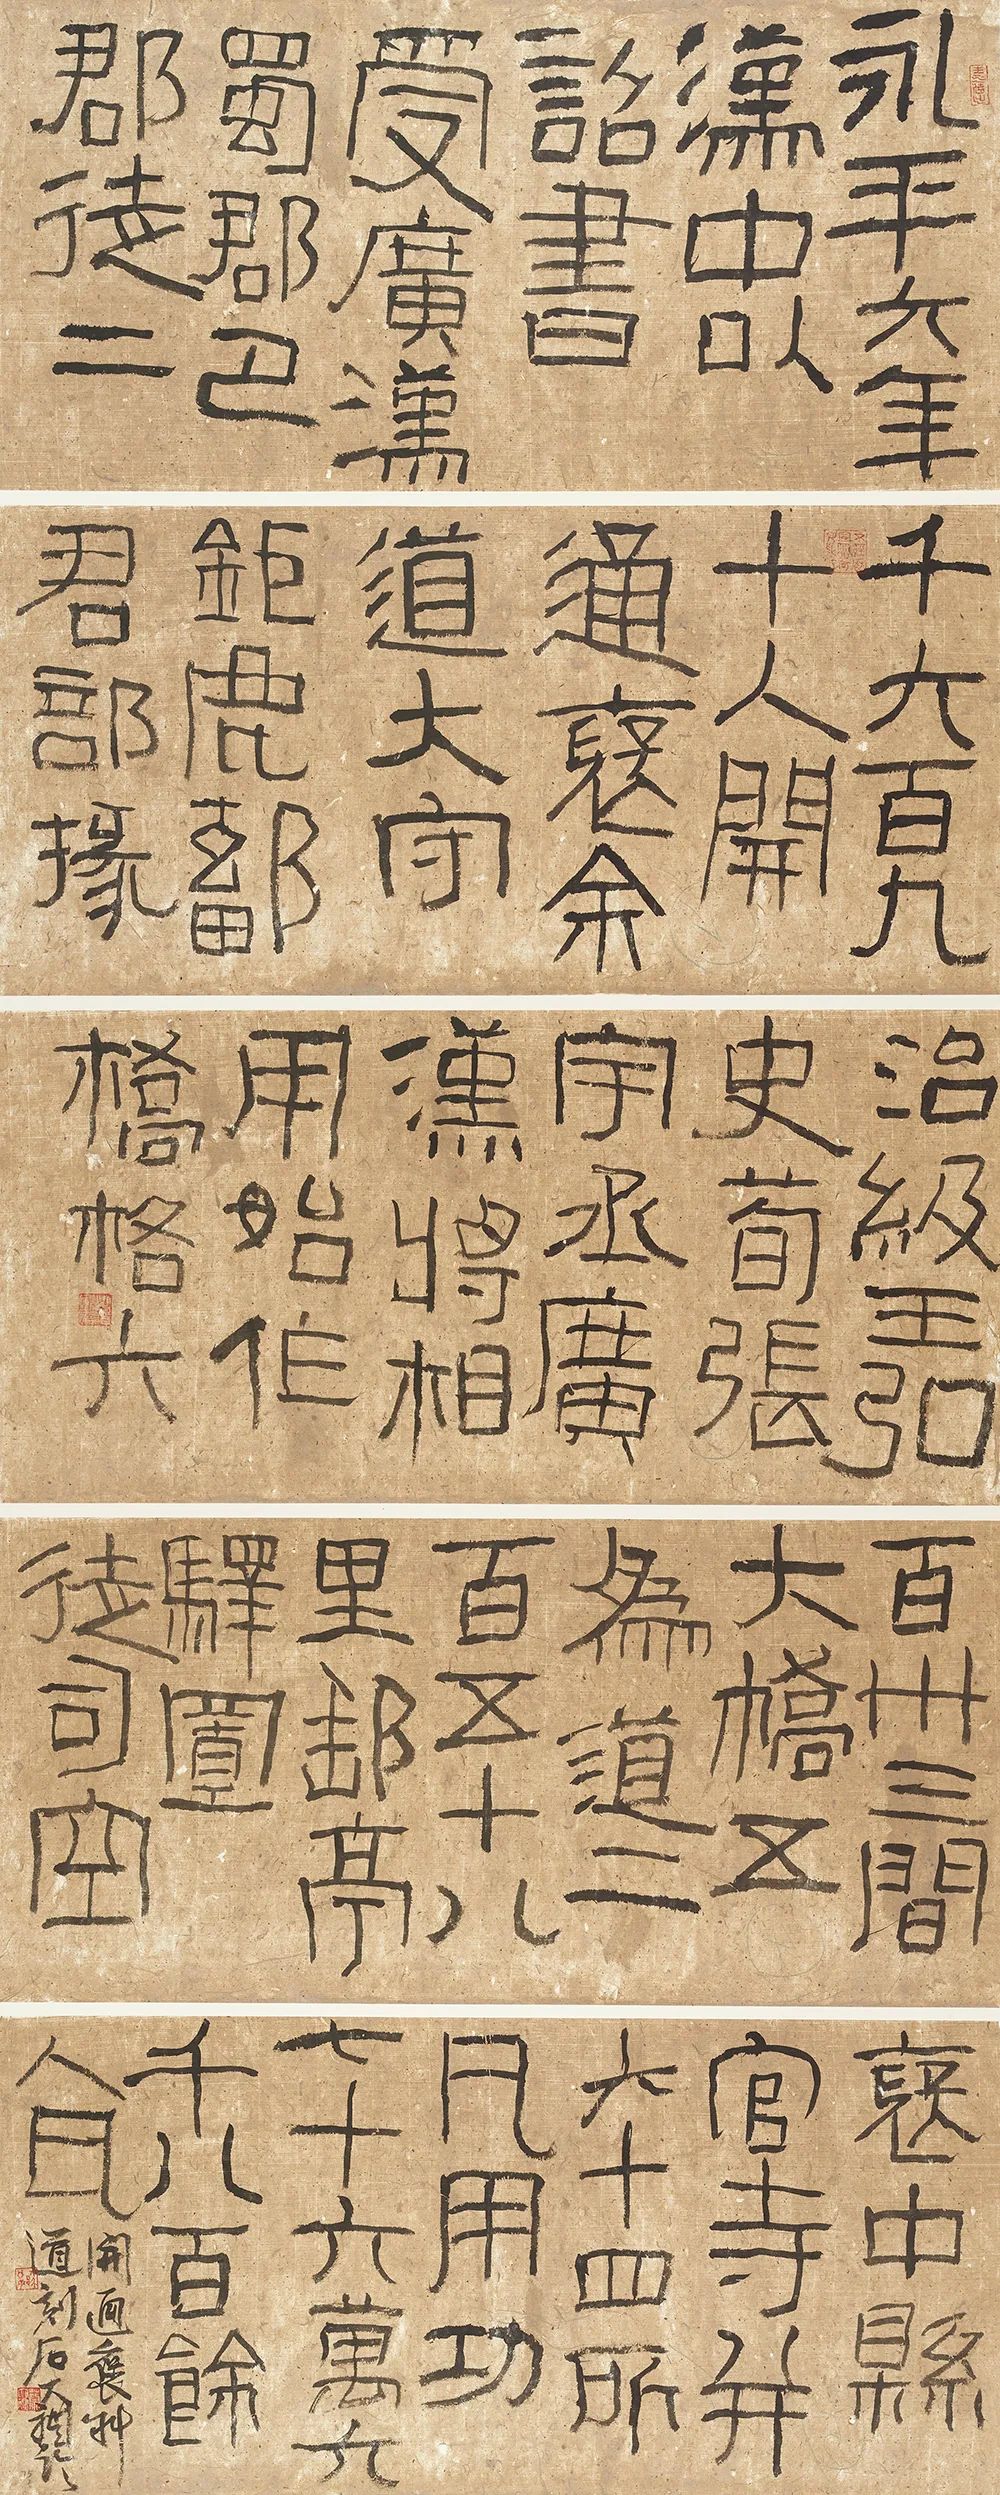 永平六年
漢中以
詔書
受廣漢
蜀郡巴
郡徒二
千六百九
十人開
通褒余
道大守
鉅鹿鄐
君部掾
治級王弘
史荀張
宇丞廣
漢將相
用始作
橋格六
百卅三間
大橋五
為道二
百五十八
里郵亭
驛置
徒司空
褒中縣
官寺并
六十四所
凡用功
七十六萬六
千八百餘
人凡
開通褒斜
道刻石